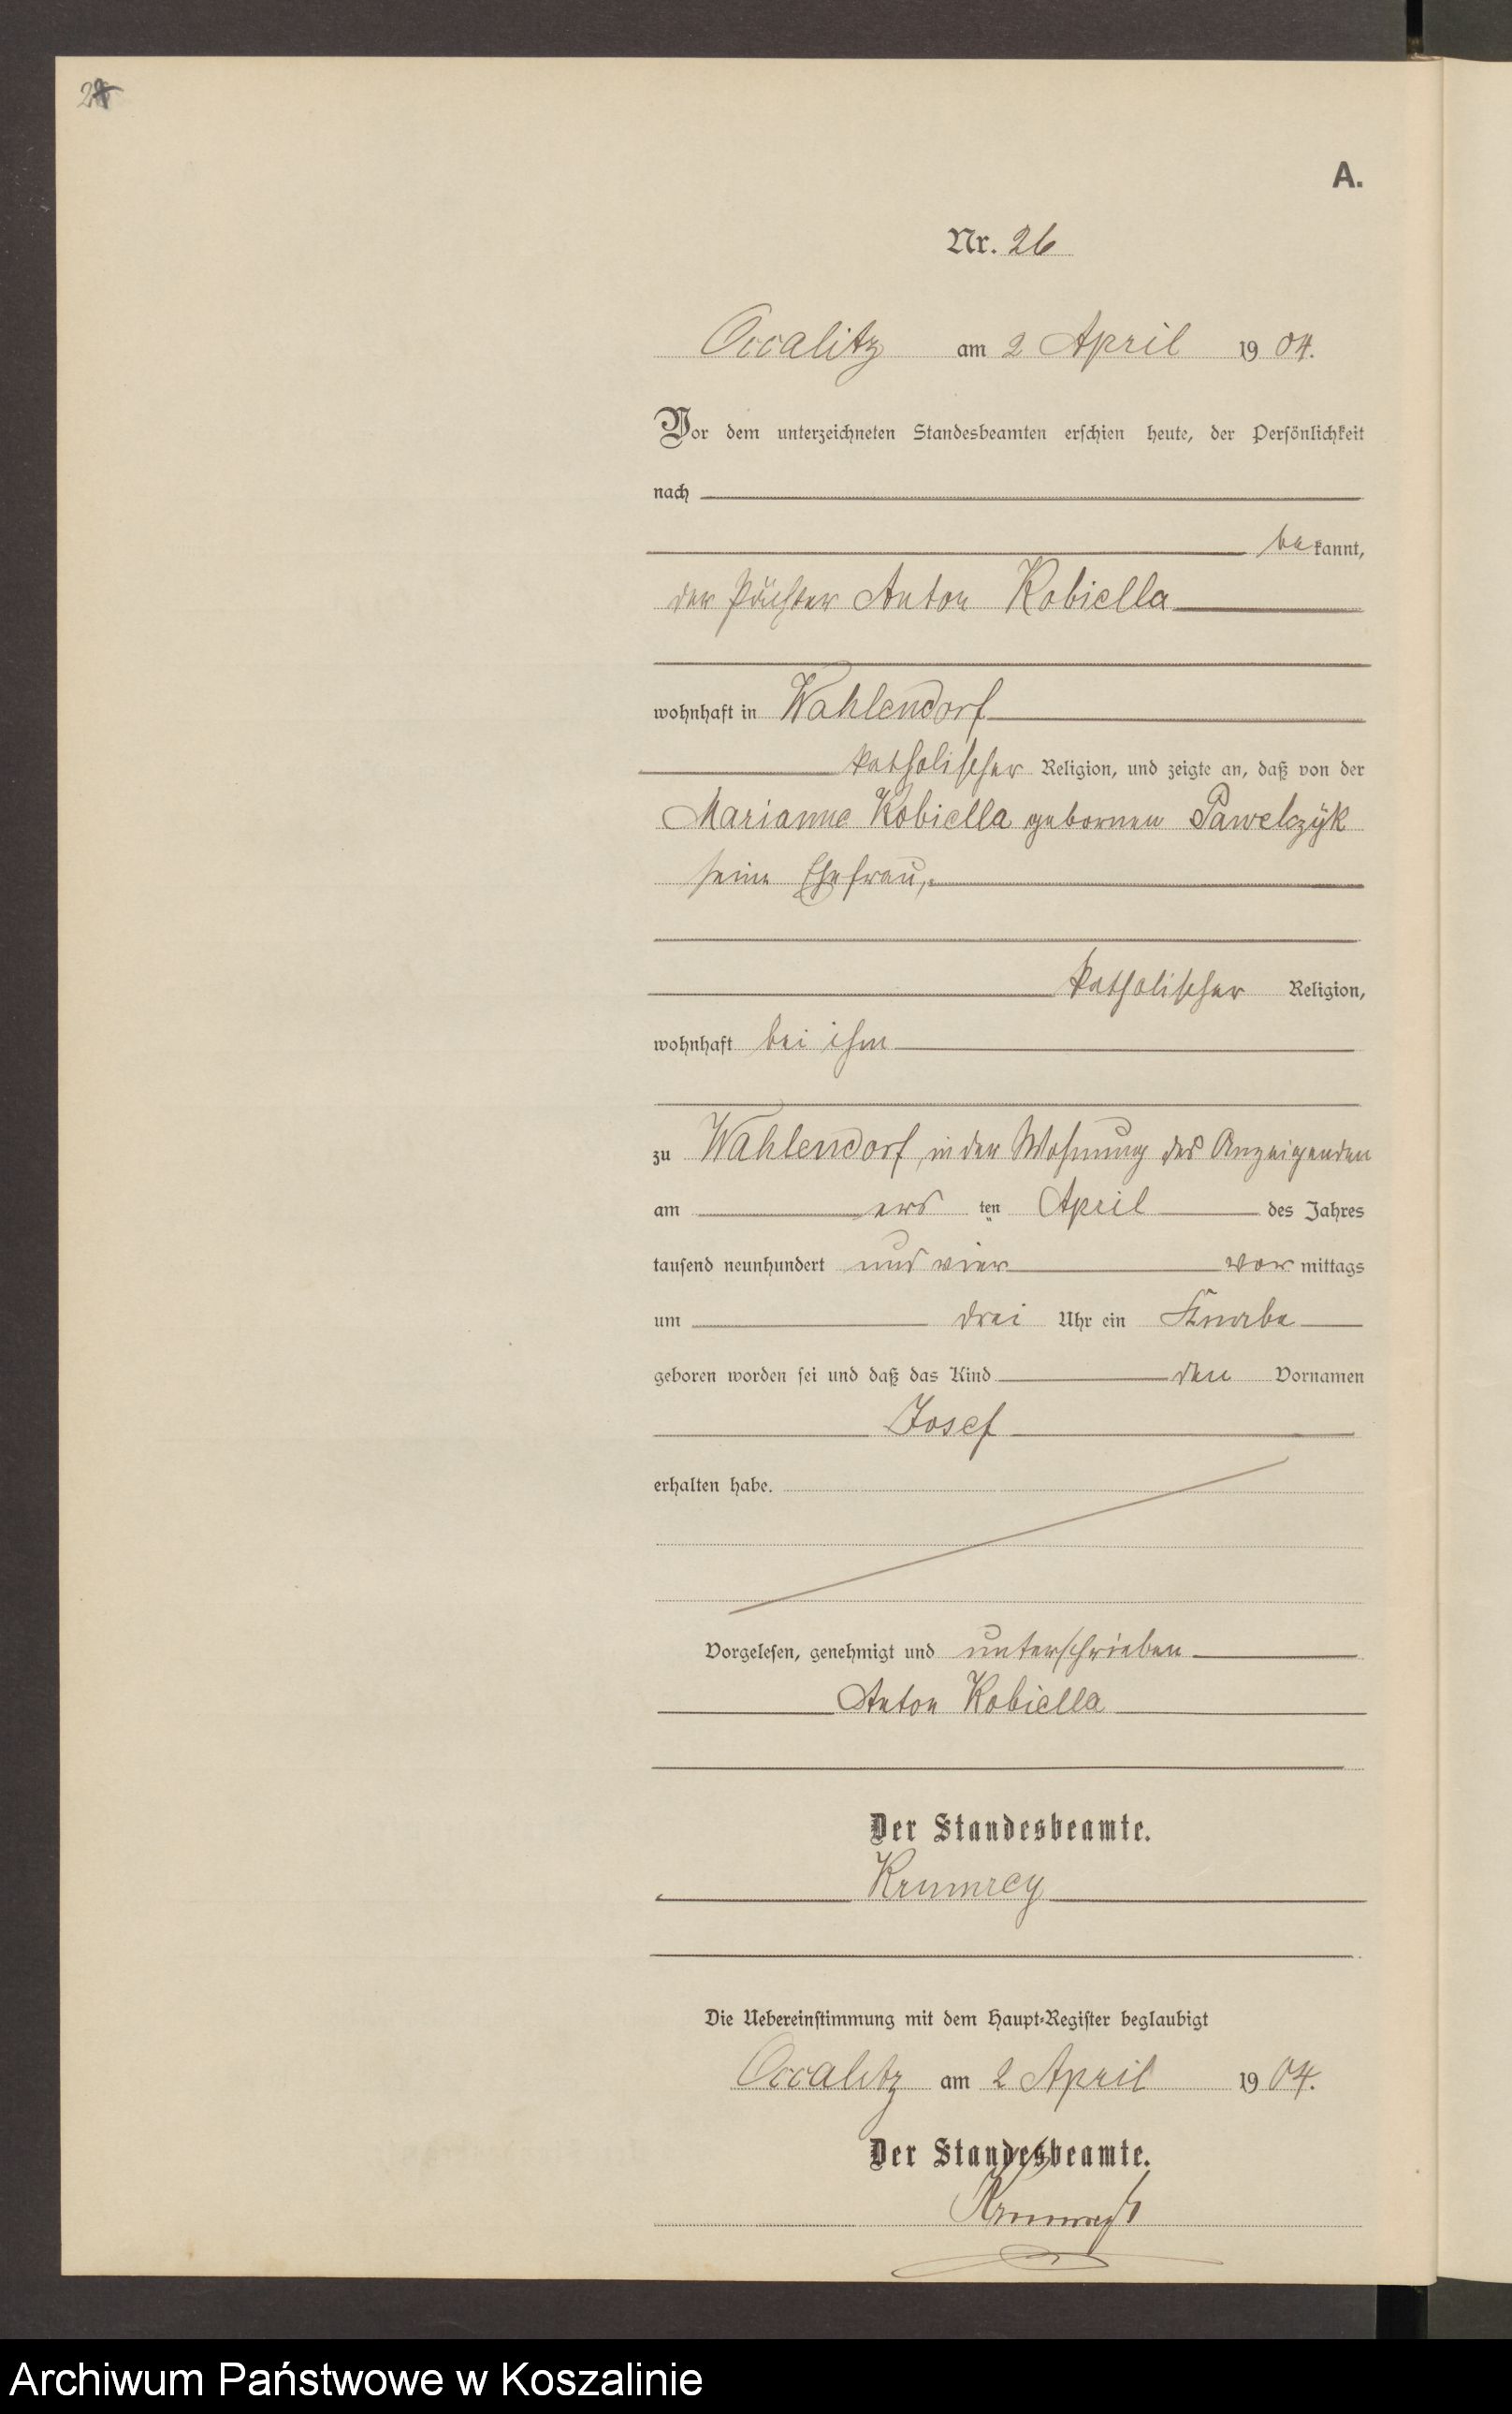 A.
Nr. 26
Occalitz am 2 April 1904.
Vor dem unterzeichneten Standesbeamten erschien heute, der Persönlichkeit
nach
bekannt,
der Pächter Anton Kobiella
wohnhaft in Wahlendorf
katholischer Religion, und zeigte an, daß von der
Marianne Kobiella gebornen Pawelczÿk
seine Ehefrau,
katholischer Religion,
wohnhaft bei ihm
zu Wahlendorf, in der Wohnung des Anzeigenden
am ers ten April des Jahres
tausend neunhundert und vier vor mittags
um drei Uhr ein Knabe
geboren worden sei und daß das Kind den Vornamen
Josef
erhalten habe.
Vorgelesen, genehmigt und unterschrieben
Anton Kobiella
Der Standesbeamte.
Krumrey
Die Uebereinstimmung mit dem Haupt-Register beglaubigt
Occalitz am 2 April 1904.
Der Standesbeamte.
Krumrey
Archiwum Państwowe w Koszalinie